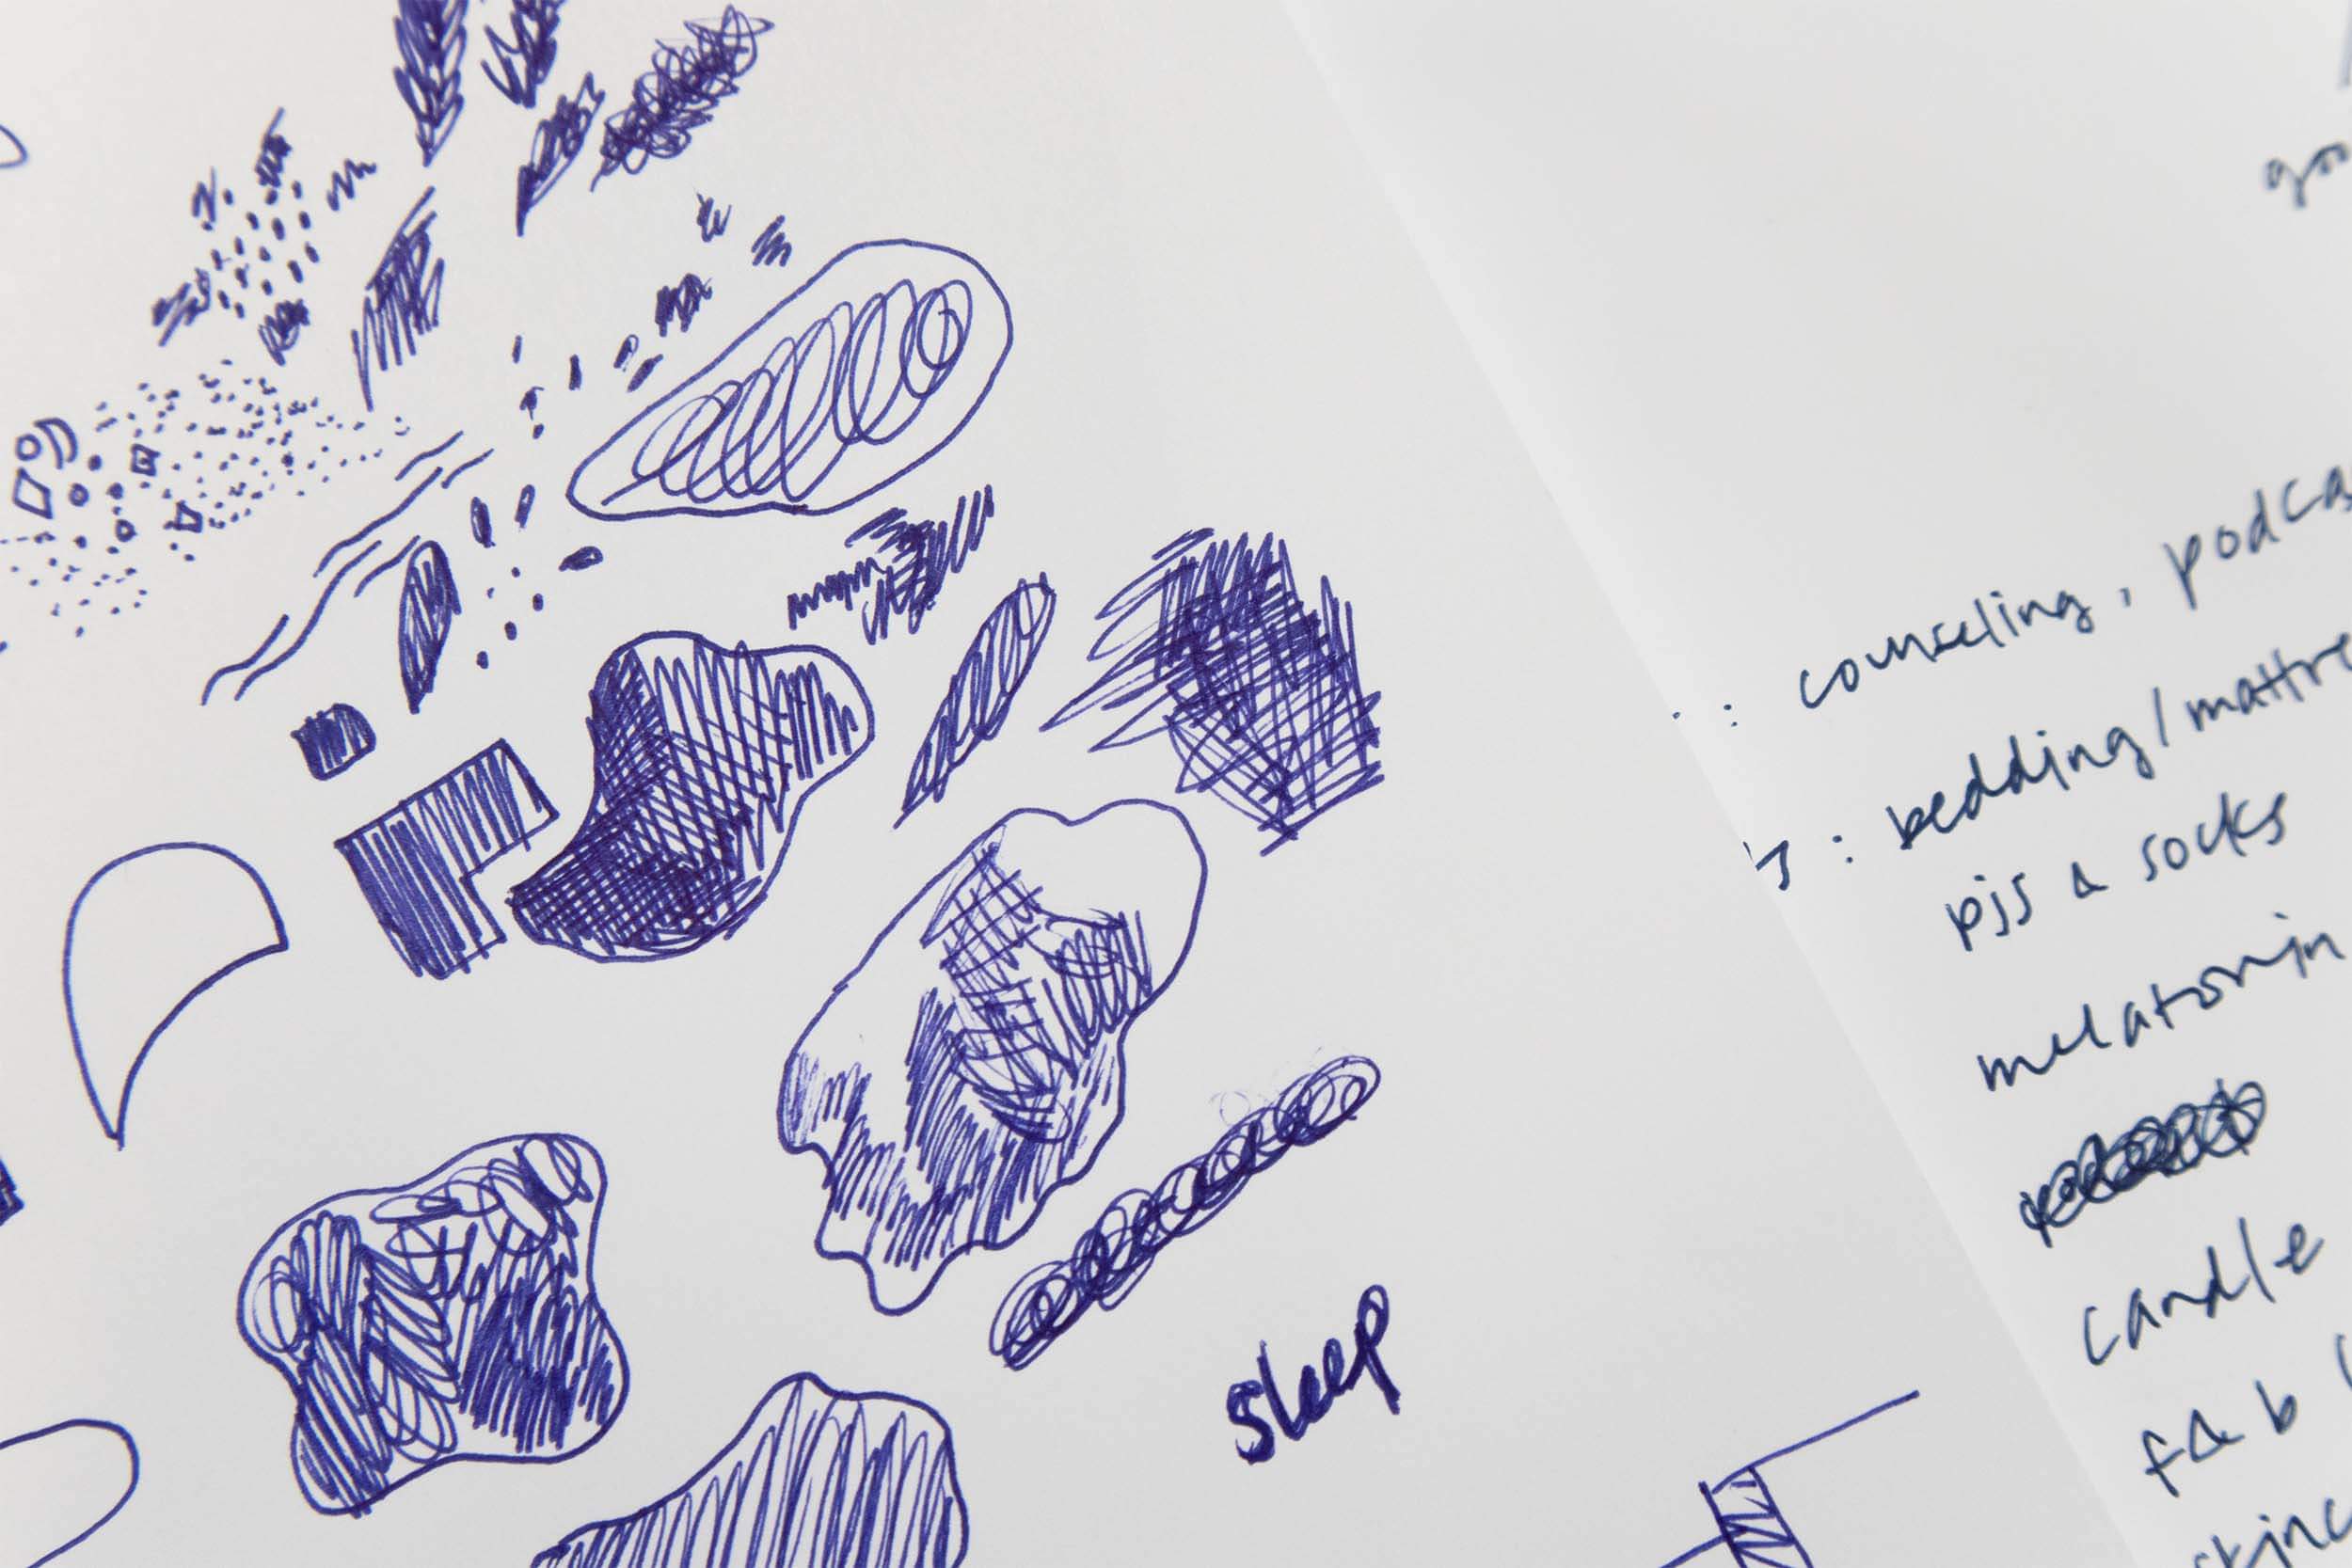 sleep
: counseling, podca
s : bedding/mattre
pjs & socks
melatonin
candle
f & b
skinc